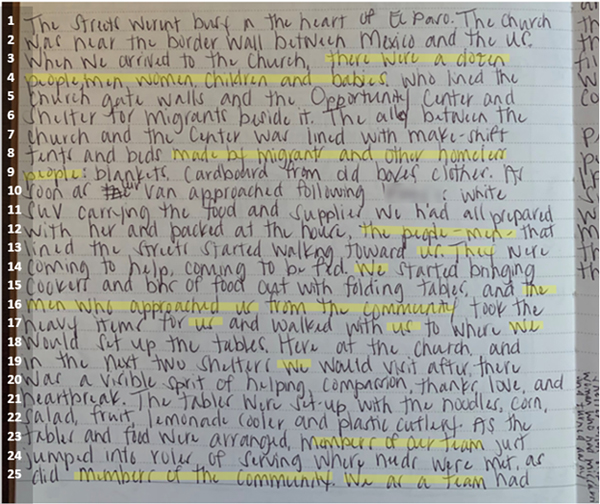 1 The streets werent busy in the heart of El Paso. The church
2 was near the border wall between Mexico and the US.
3 When we arrived to the Church, there were a dozen
4 people, men, women, children and babies, who lined the
5 church gate walls and the Opportunity Center and
6 shelter for migrants beside it. The ally between the
7 church and the Center was lined with make-shift
8 tents and beds made by migrants and other homeless
9 people: blankets, cardboard from old boxes, clothes. As
10 soon as van approached following white
11 SUV carrying the food and supplies we had all prepared
12 with her and packed at the house, the people-men- that
13 lined the streets started walking toward us. They were
14 coming to help, coming to be fed. We started bringing
15 coolers and of food out with folding tables, and the
16 men who approached us from the community took the
17 heavy items for us and walked with us to where we
18 would set up the tables. Here at the church, and
19 in the next two shelters we would visit after, there
20 was a visible spirit of helping, compassion, thanks, love, and
21 heartbreak. The tables were set-up with the noodles, corn,
22 salad, fruit, lemonade cooler and plastic cutlery. As the
23 tables and food were arranged, members of our team just
24 jumped into roles of serving where needs were met, as
25 did members of the community. We as a team had